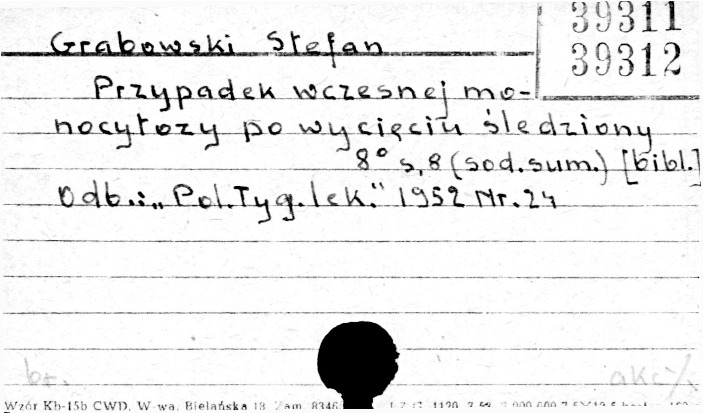 39311
39312
Grabowski Stefan
Przypadek wczesnej mo-
nocytozy po wycięciu śledziony
8° s, 8 (sod. sum.) [bibl.]
Odb.: „Pol. Tyg. lek." 1952 Nr. 24
br. akc
Wzór Kb-15b CWD, W-wa, Bielańska 18 Zam. 8346